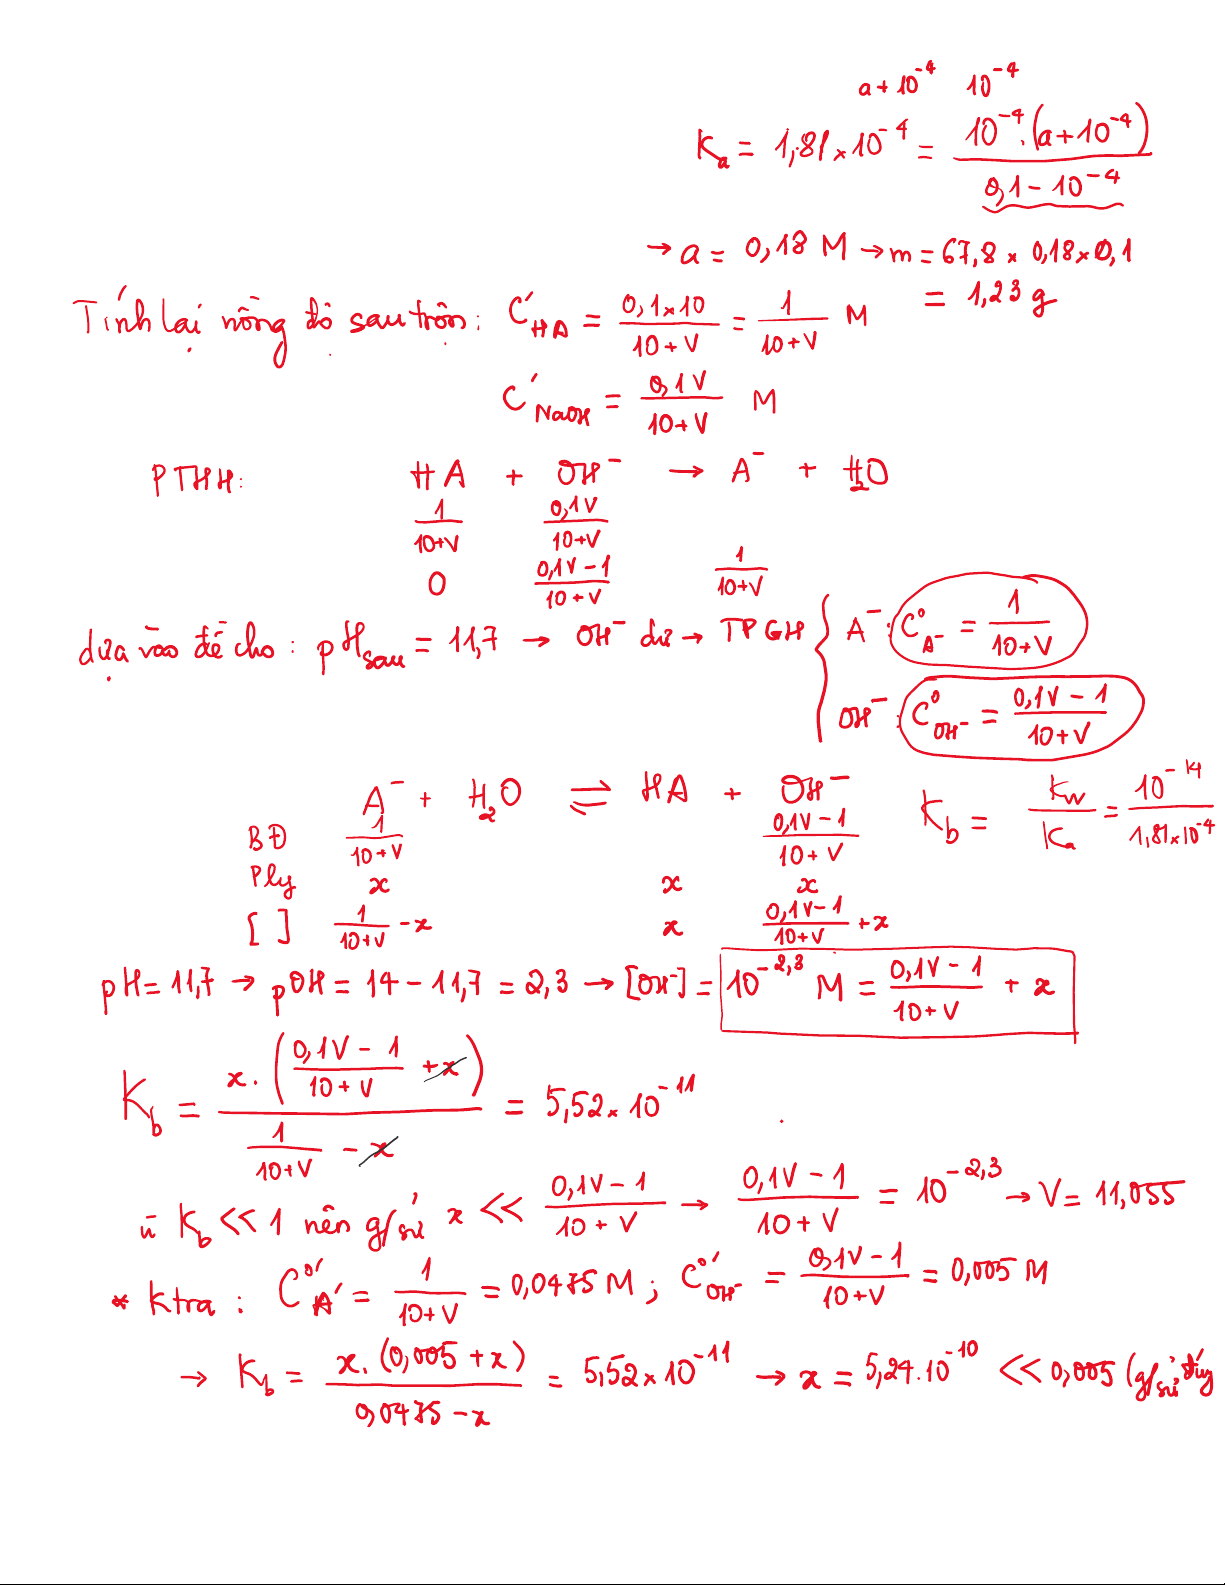 a + 10⁻⁴ 10⁻⁴
Kₐ = 1,81 × 10⁻⁴ = 10⁻⁴.(a + 10⁻⁴) / (0,1 − 10⁻⁴)
→ a = 0,18 M → m = 67,8 × 0,18 × 0,1
= 1,23 g
Tính lại nồng độ sau trộn: C'HA = (0,1×10)/(10+V) = 1/(10+V) M
C'NaOH = 0,1V/(10+V) M
PTHH: HA + OH⁻ → A⁻ + H₂O
1/(10+V) 0,1V/(10+V)
0 (0,1V − 1)/(10+V) 1/(10+V)
dựa vào đề cho: pHsau = 11,7 → OH⁻ dư → TPGH { A⁻: C°A⁻ = 1/(10+V)
OH⁻: C°OH⁻ = (0,1V − 1)/(10+V)
A⁻ + H₂O ⇌ HA + OH⁻ Kb = Kw/Ka = 10⁻¹⁴/(1,81×10⁻⁴)
BĐ 1/(10+V) (0,1V − 1)/(10+V)
Ply x x x
[ ] 1/(10+V) − x x (0,1V − 1)/(10+V) + x
pH = 11,7 → pOH = 14 − 11,7 = 2,3 → [OH⁻] = 10⁻²,³ M = (0,1V − 1)/(10+V) + x
Kb = x.((0,1V − 1)/(10+V) + x) / (1/(10+V) − x) = 5,52×10⁻¹¹
vì Kb << 1 nên g/sử x << (0,1V − 1)/(10+V) → (0,1V − 1)/(10+V) = 10⁻²,³ → V = 11,055
* Ktra: C°'A⁻ = 1/(10+V) = 0,0475 M; C°'OH⁻ = (0,1V − 1)/(10+V) = 0,005 M
→ Kb = x.(0,005 + x)/(0,0475 − x) = 5,52×10⁻¹¹ → x = 5,24.10⁻¹⁰ << 0,005 (g/sử đúng